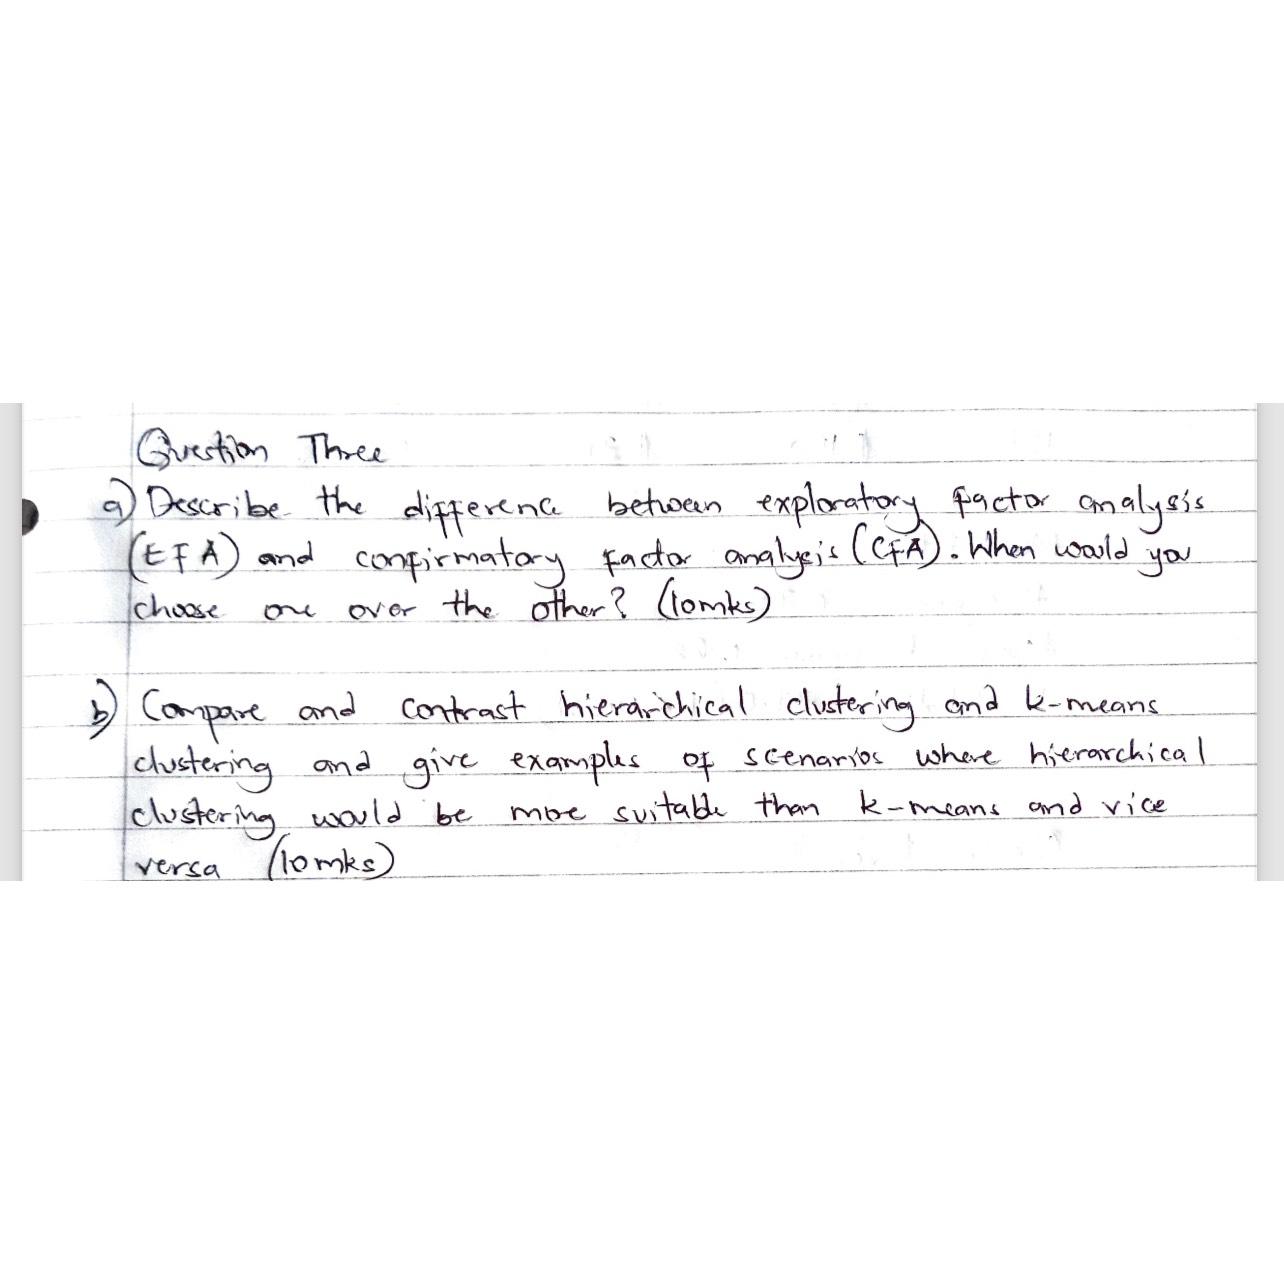 Question Three
a) Describe the difference between exploratory factor analysis
(EFA) and confirmatory factor analysis (CFA). When would you
choose one over the other? (10mks)
b) Compare and contrast hierarchical clustering and k-means
clustering and give examples of scenarios where hierarchical
clustering would be more suitable than k-means and vice
versa (10mks)